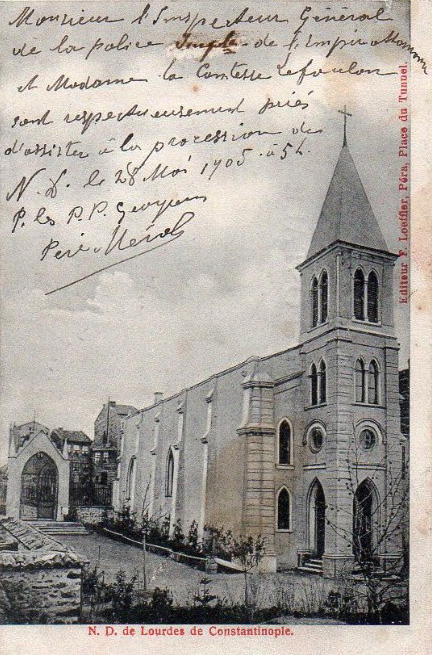 Monsieur l'Inspecteur Général
de la police de l'Empire Ottoman
et Madame la Comtesse Lefoulon
sont respectueusement priés
d'assister à la procession de
N. D. le 28 Mai 1905 à 5h
P. les P.P. Géorgiens
Père
Editeur F. Loeffler, Péra, Place du Tunnel.
N. D. de Lourdes de Constantinople.